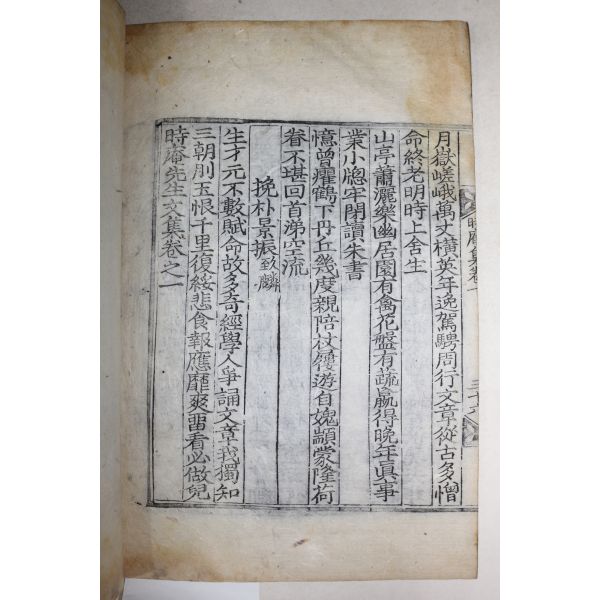 月嶽嵯峨萬丈橫英年逸駕騁周行文章從古多憎
命終老明時上舍生
山亭蕭灑樂幽居園有禽花盤有蔬贏得晩年眞事
業小牕牢閉讀朱書
憶曾癯鶴下丹丘幾度親陪杖屨遊自媿顓蒙隆荷
眷不堪回首涕空流
挽朴景振致麟
生才元不數賦命故多奇經學人爭誦文章我獨知
三朝刖玉恨千里復綏悲食報應靡爽留看必做兒
時庵先生文集卷之一
時庵集卷一
三十六